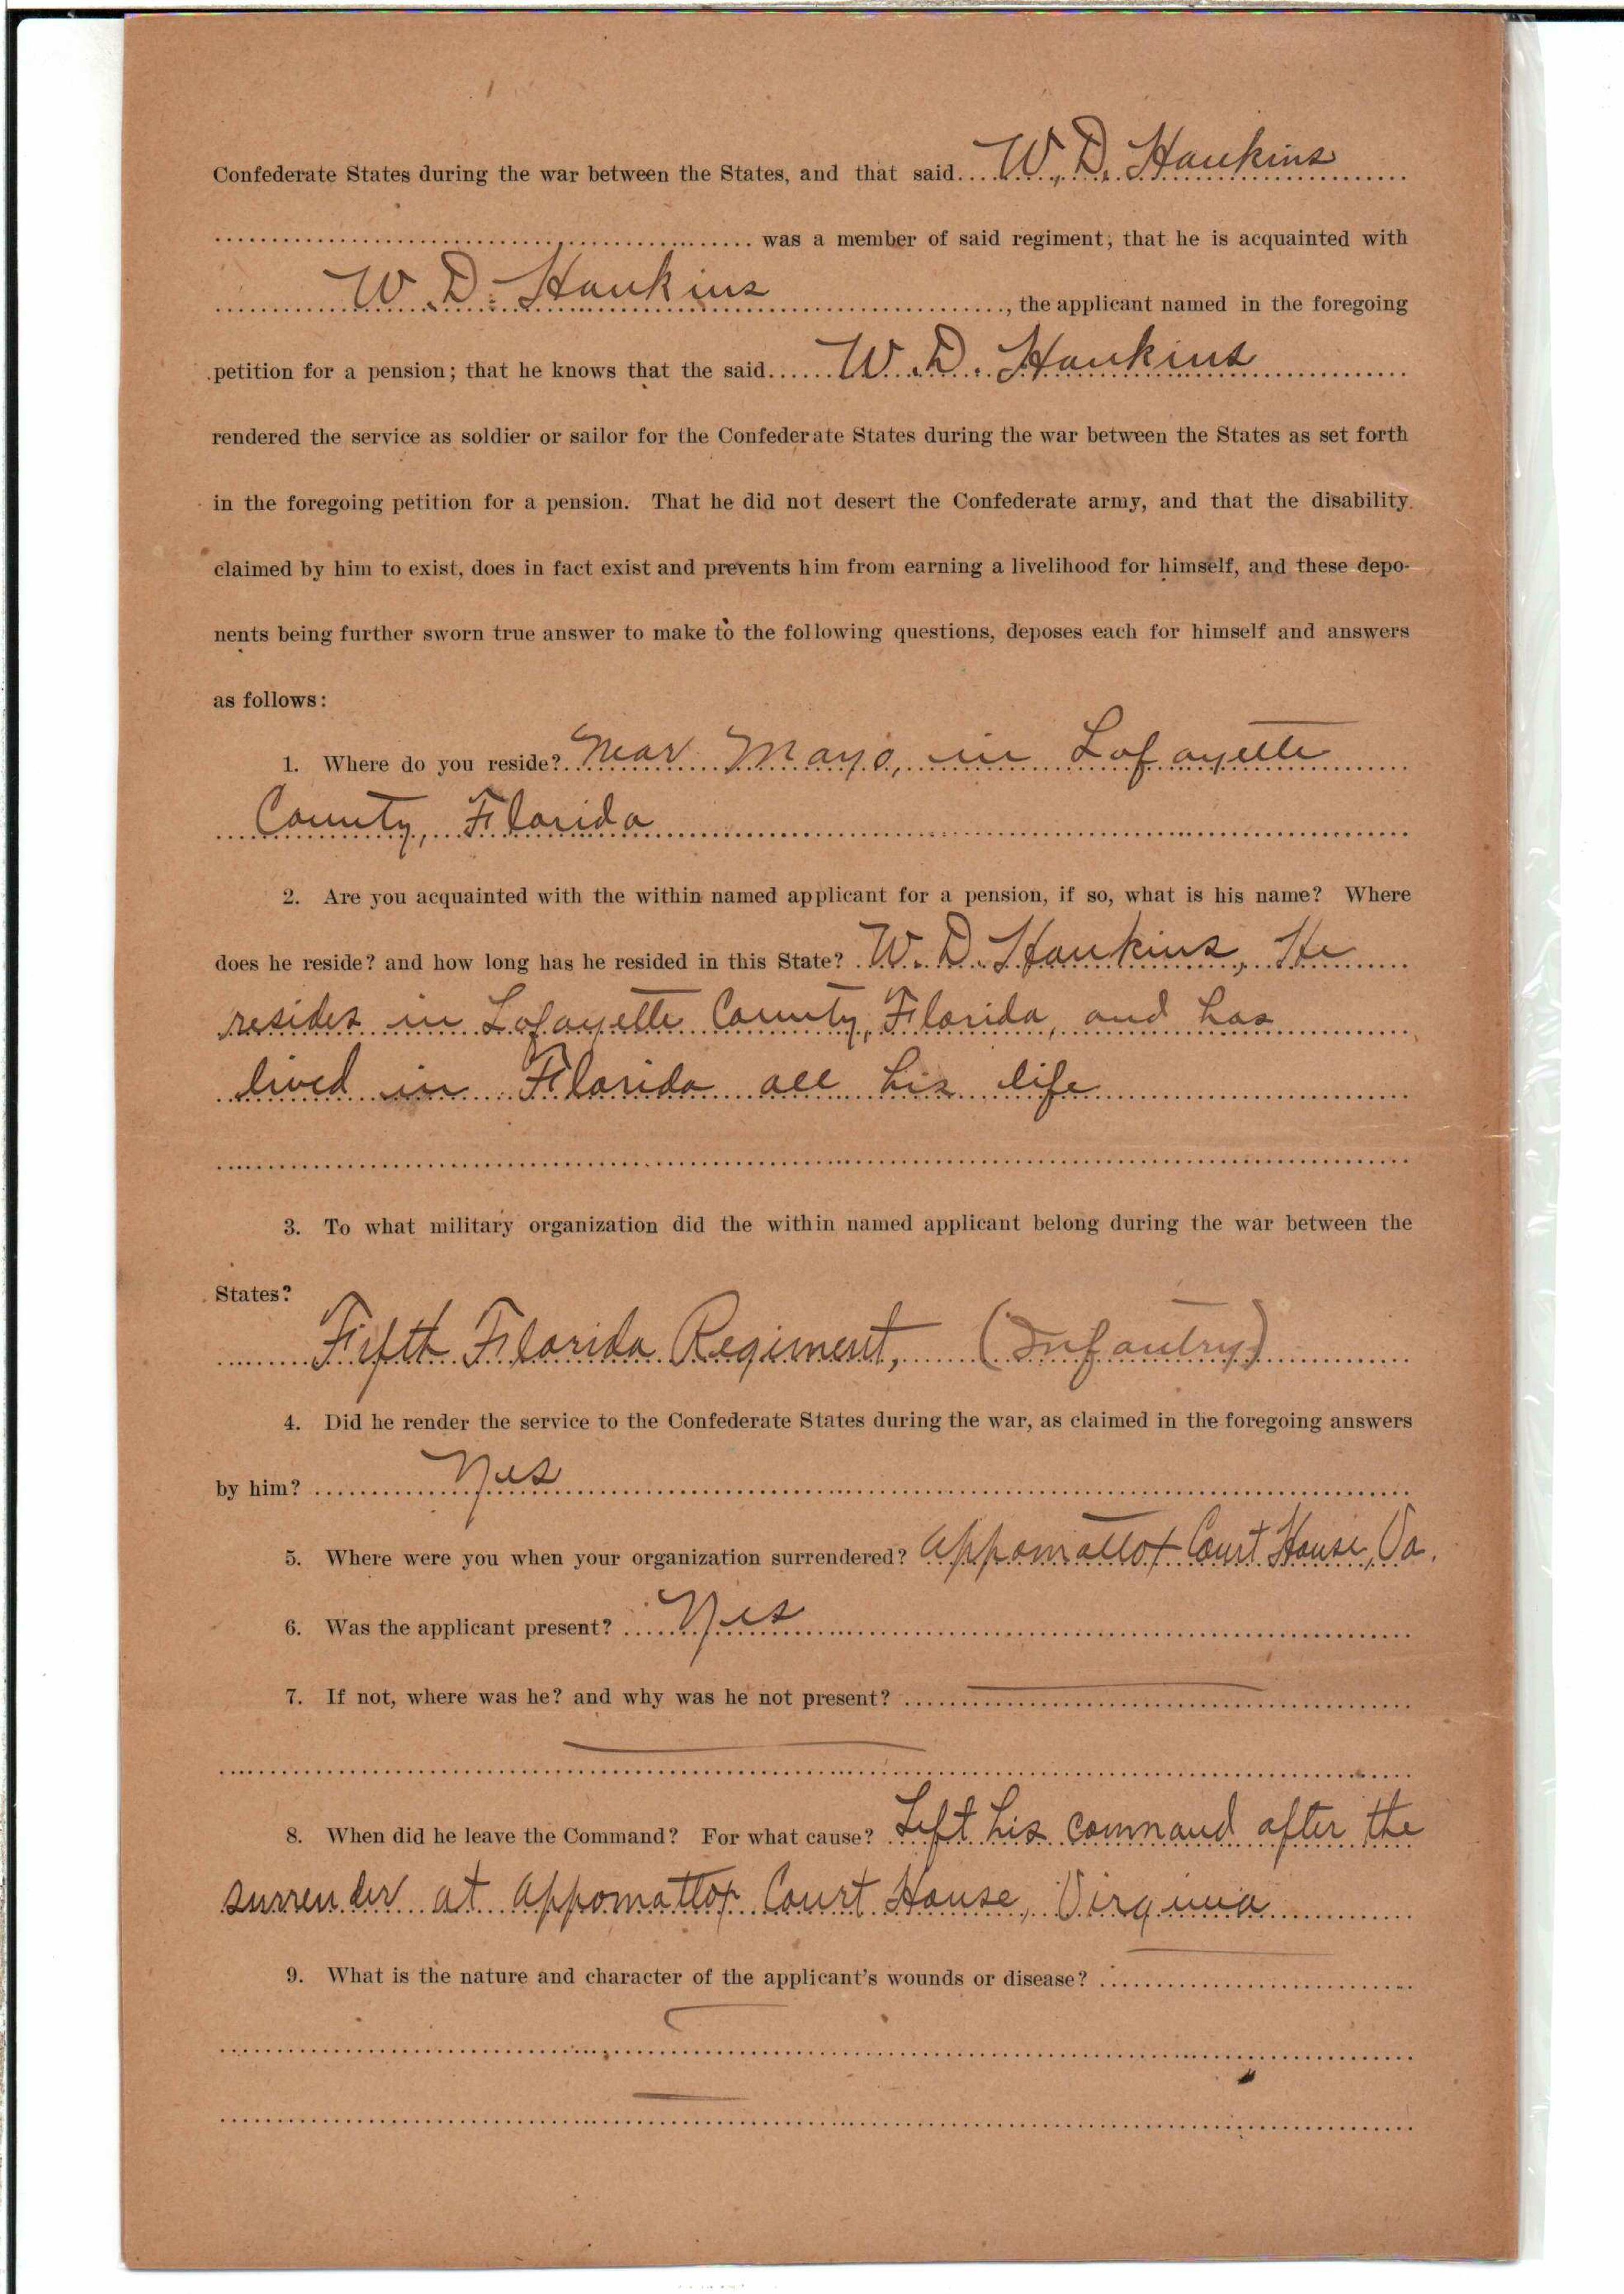 Confederate States during the war between the States, and that said W. D. Hankins
was a member of said regiment; that he is acquainted with
W. D. Hankins, the applicant named in the foregoing
petition for a pension; that he knows that the said W. D. Hankins
rendered the service as soldier or sailor for the Confederate States during the war between the States as set forth
in the foregoing petition for a pension. That he did not desert the Confederate army, and that the disability
claimed by him to exist, does in fact exist and prevents him from earning a livelihood for himself, and these depo-
nents being further sworn true answer to make to the following questions, deposes each for himself and answers
as follows:
1. Where do you reside? Near Mayo, in Lafayette
County, Florida
2. Are you acquainted with the within named applicant for a pension, if so, what is his name? Where
does he reside? and how long has he resided in this State? W. D. Hankins, He
resides in Lafayette County, Florida, and has
lived in Florida all his life
3. To what military organization did the within named applicant belong during the war between the
States?
Fifth Florida Regiment, (Infantry)
4. Did he render the service to the Confederate States during the war, as claimed in the foregoing answers
by him? Yes
5. Where were you when your organization surrendered? Appomattox Court House, Va.
6. Was the applicant present? Yes
7. If not, where was he? and why was he not present?
8. When did he leave the Command? For what cause? Left his command after the
surrender at Appomattox Court House, Virginia
9. What is the nature and character of the applicant's wounds or disease?